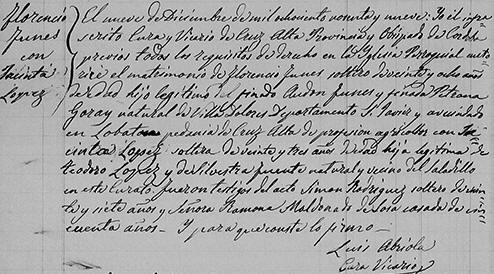 florencio
funes
con
Jacinta
Lopez
El nueve de Diciembre de mil ochociento noventa y nueve: Yo el infra
scrito Cura y Vicario de Cruz Alta Provincia y Obispado de Cordoba
previos todos los requisitos de derecho en la Yglesia Parroquial auto
ricé el matrimonio de florencio funes soltero de veinte y ocho años
de edad hijo legitimo del finado Audon funes y finada Petrona
Goray natural de Villa Dolores Departamento S. Javier y avecindado
en Lobaton pedania de Cruz Alta de profesion agricultor con Ja
cinta Lopez soltera de veinte y tres años de edad hija legitima de
teodoro Lopez y de Silvestra fuente natural y vecino del Saladillo
en este Curato. fueron testigos del acto Simon Rodriguez soltero de vein
te y siete años y Señora Ramona Maldonado de Sosa casada de cin
cuenta años — Y para que conste lo firmo —
Luis Abriola
Cura Vicario